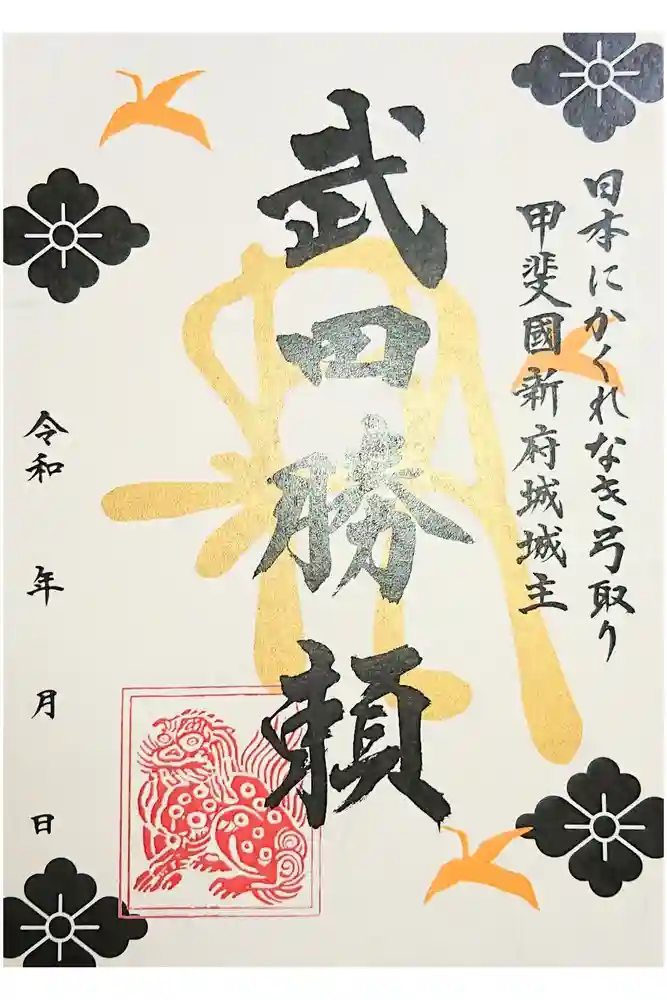 日本にかくれなき弓取り
甲斐國新府城城主
武田勝頼
令和 年 月 日